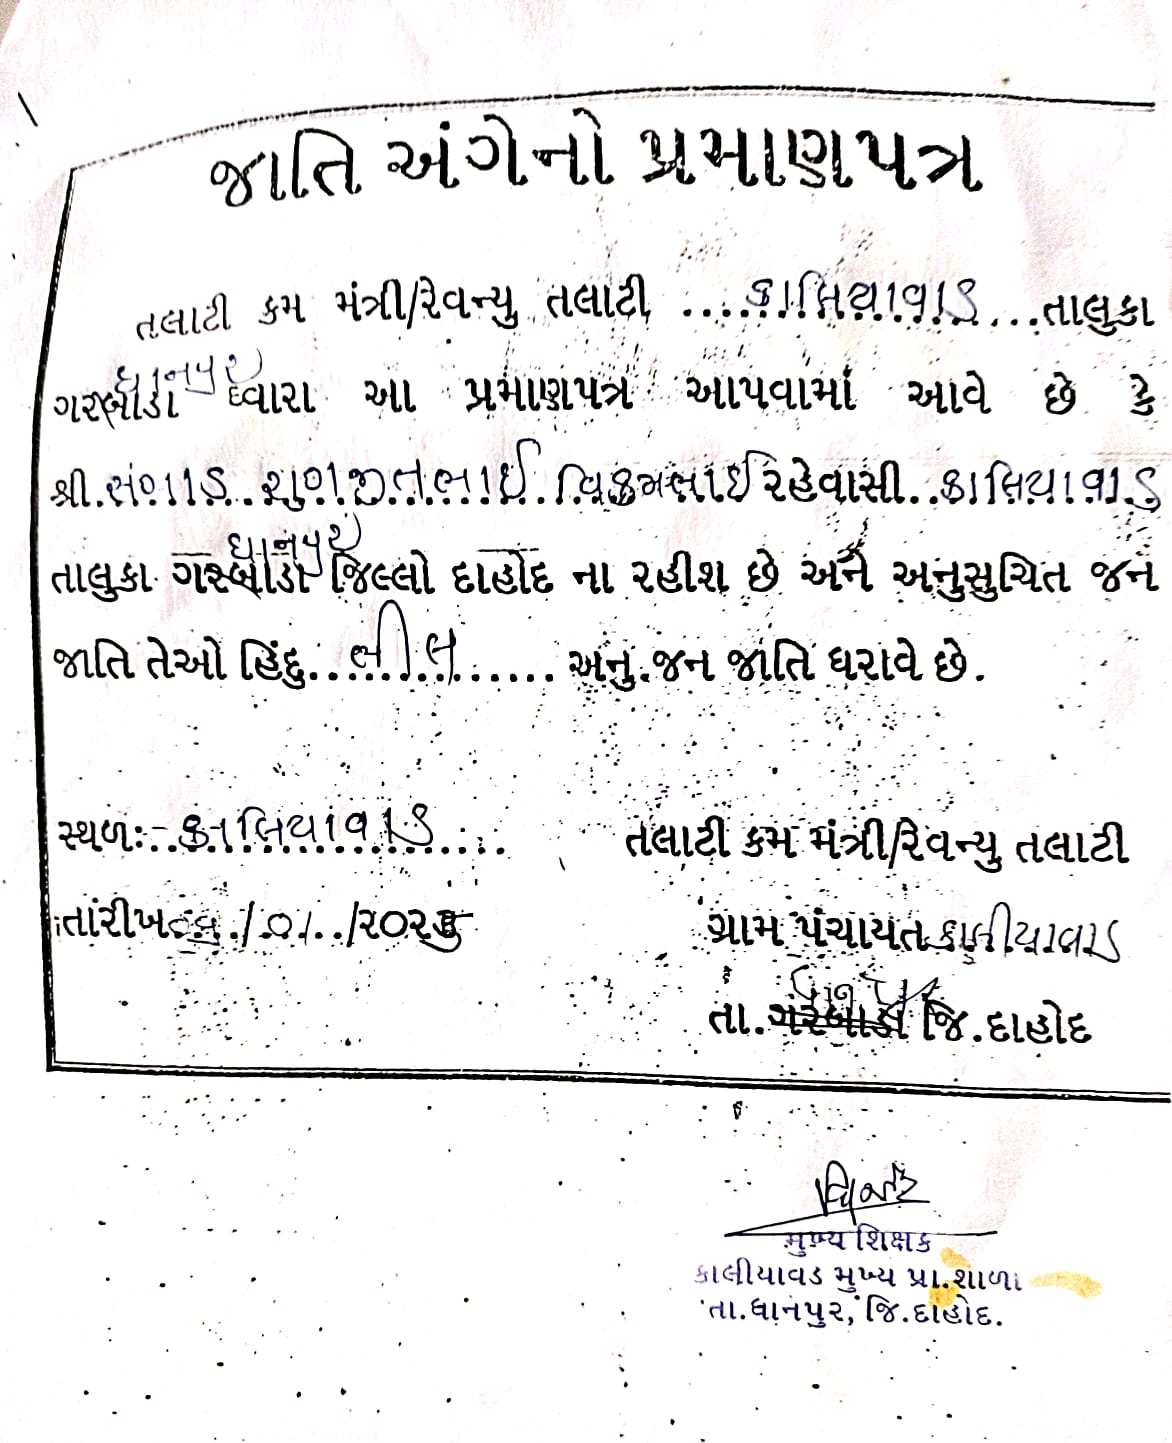 જાતિ અંગેનો પ્રમાણપત્ર
તલાટી કમ મંત્રી/રેવન્યુ તલાટી ....કાલિયાવાડ...તાલુકા
ધાનપુર
ગરબાડા ધ્વારા આ પ્રમાણપત્ર આપવામાં આવે છે કે
શ્રી.સંગાડ..ગુણજીતભાઈ.વિક્રમભાઈ રહેવાસી..કાલિયાવાડ
ધાનપુર
તાલુકા ગરબાડા જિલ્લો દાહોદ ના રહીશ છે અને અનુસુચિત જન
જાતિ તેઓ હિંદુ...ભીલ...... અનુ.જન જાતિ ધરાવે છે.
સ્થળ:-..કાલિયાવાડ....
તલાટી કમ મંત્રી/રેવન્યુ તલાટી
તારીખ
ગ્રામ પંચાયત કાળીયાવાડ
ધાનપુર
તા.ગરબાડા જિ.દાહોદ
મુખ્ય શિક્ષક
કાલીયાવડ મુખ્ય પ્રા.શાળા
તા.ધાનપુર, જિ.દાહોદ.